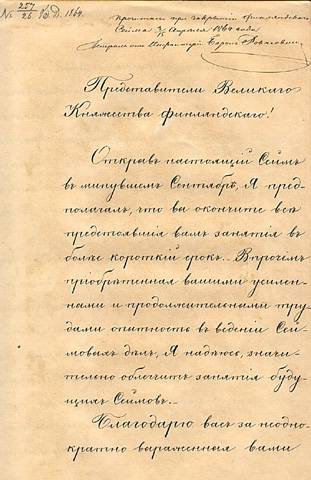 № 257/26 К.Д. 1864.
прочитана при закрытіи финляндскаго
Сейма 3/15 Апрѣля 1864 года
Генераломъ Инфантеріи Барономъ Рокасовскимъ
Представители Великаго
Княжества Финляндскаго!
Открывъ настоящій Сеймъ
въ минувшемъ Сентябрѣ, Я пред-
полагалъ, что вы окончите всѣ
предстоявшія вамъ занятія въ
болѣе короткій срокъ. Впрочемъ
пріобрѣтенная вашими усилен-
ными и продолжительными тру-
дами опытность въ веденіи Сей-
мовыхъ дѣлъ, Я надѣюсь, значи-
тельно облегчитъ занятія буду-
щихъ Сеймовъ.
Благодарю васъ за неодно-
кратно выраженныя вами